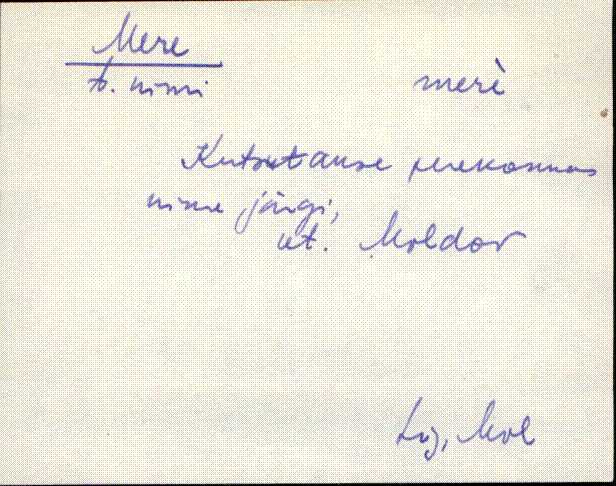 Mere
t. nimi merè
Kutsutanse perekonnas
nime järgi,
vt. Moldov